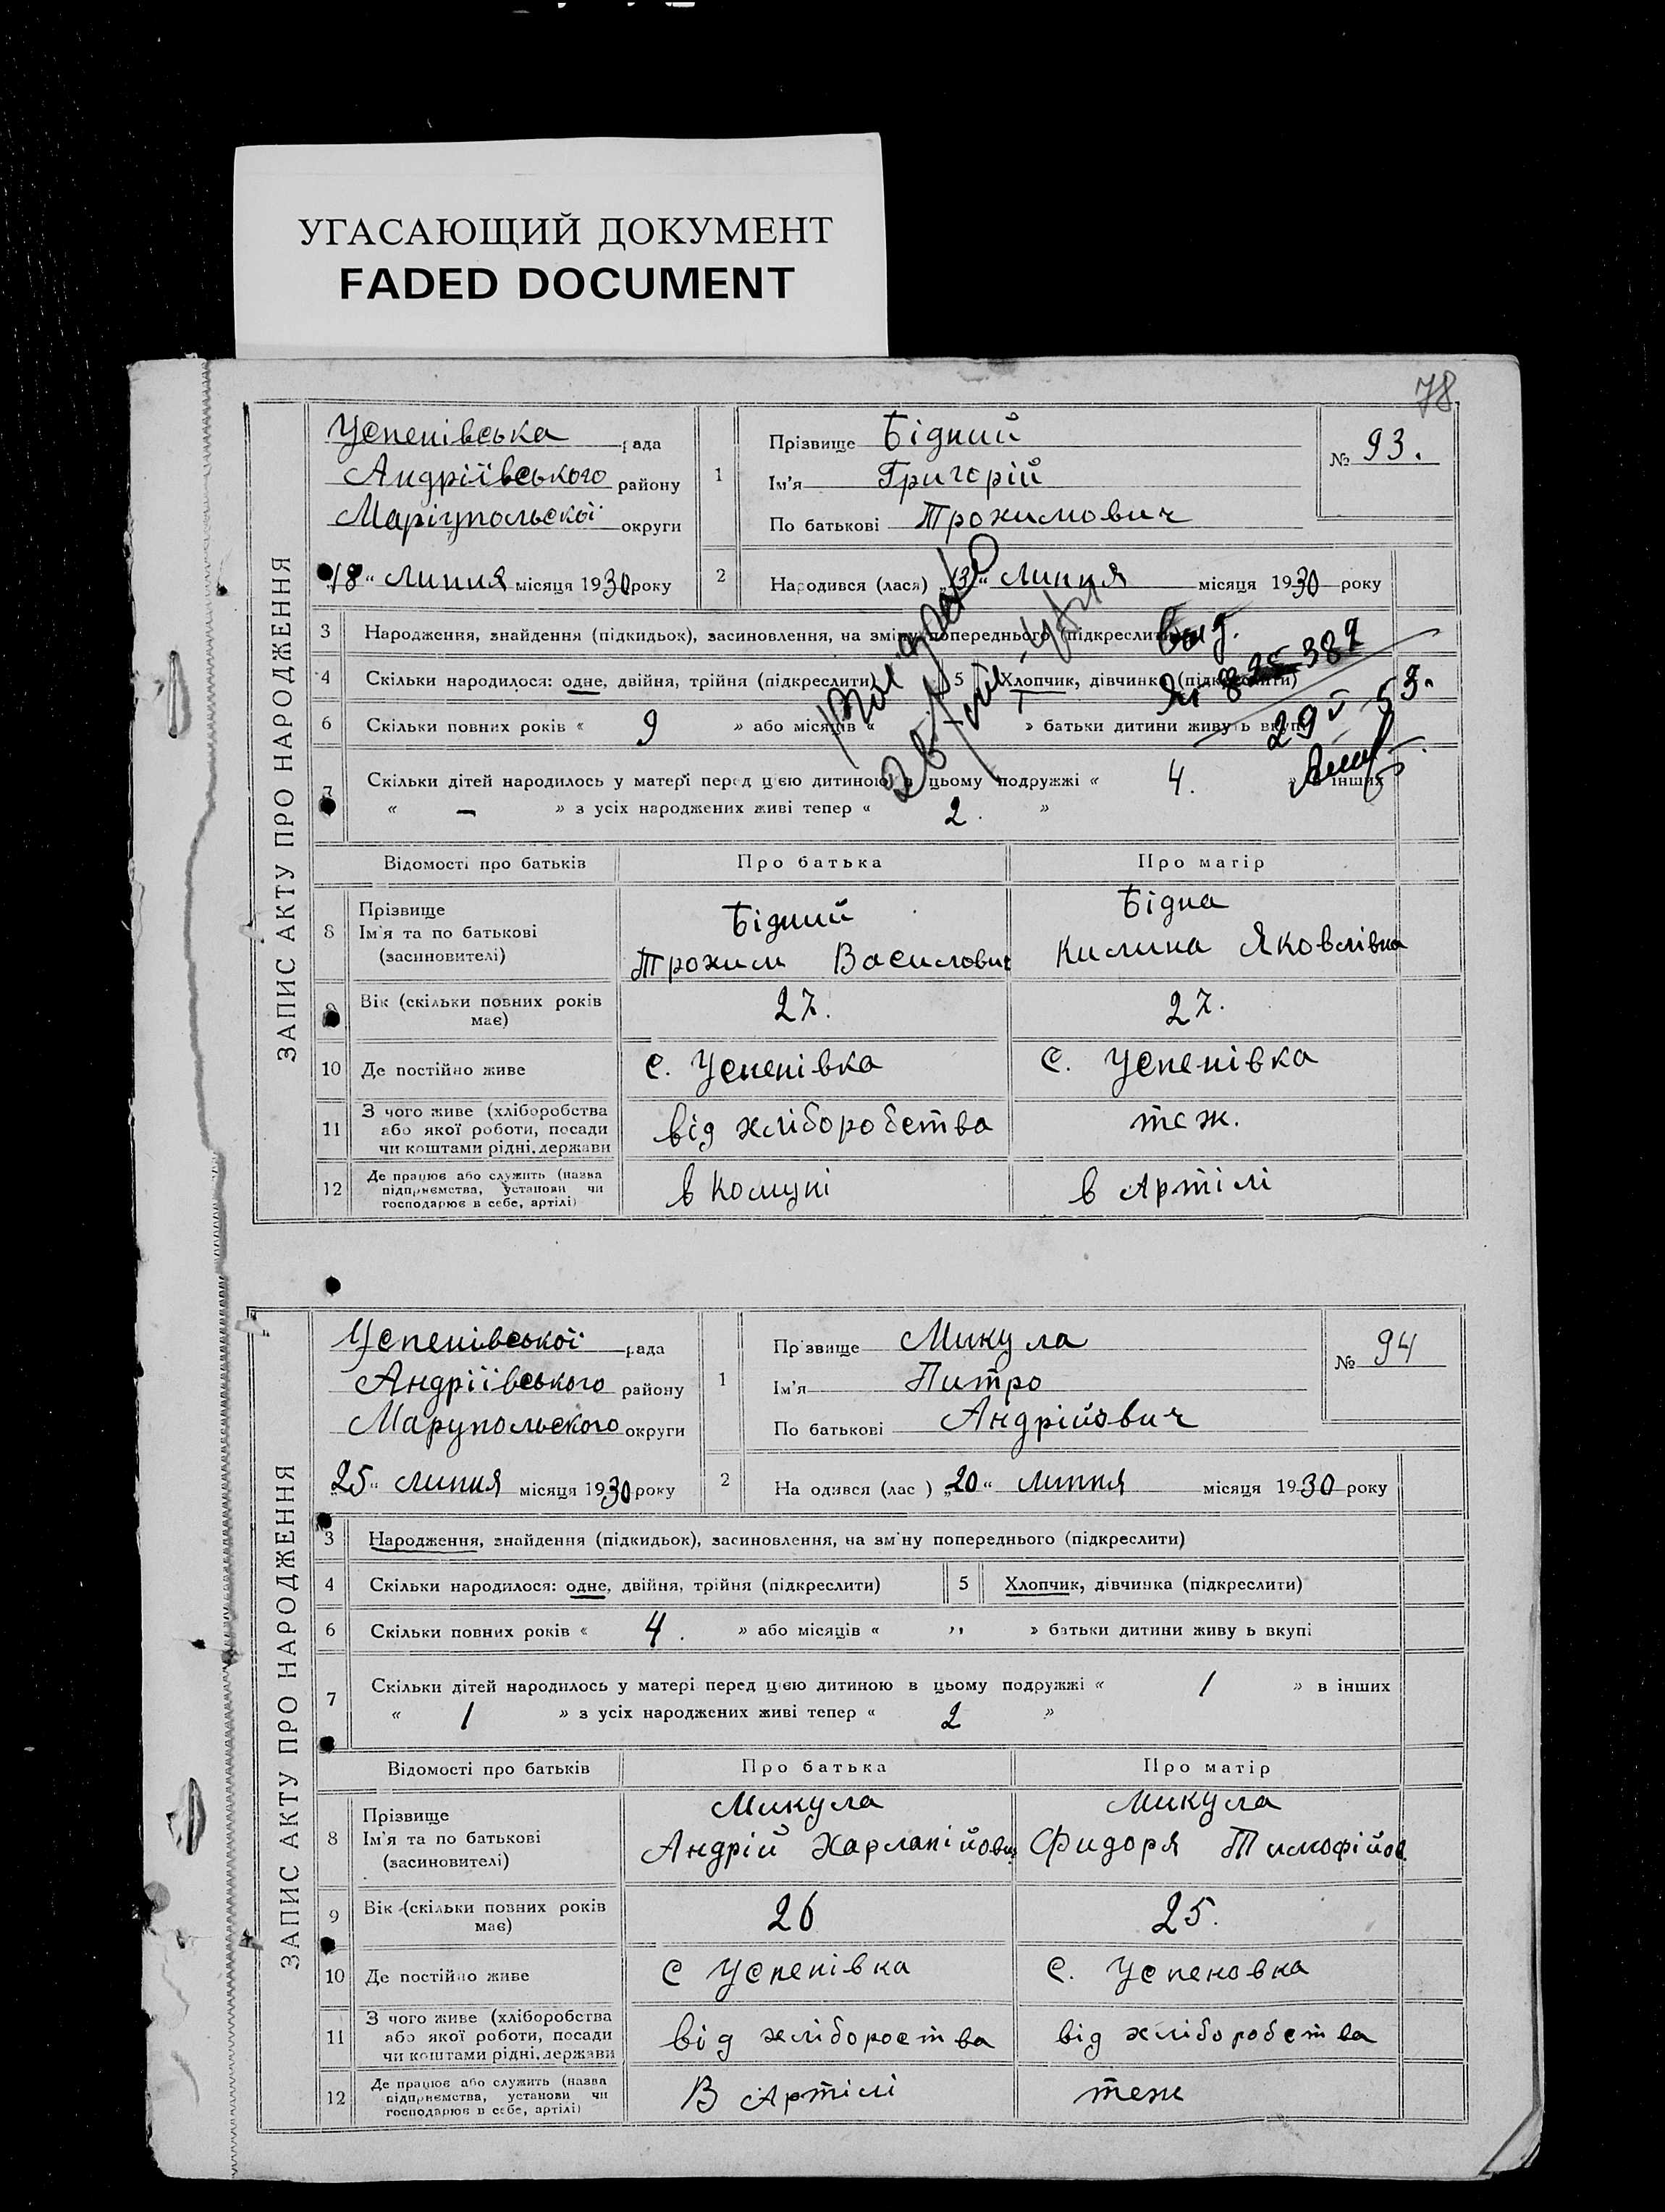 УГАСАЮЩИЙ ДОКУМЕНТ
FADED DOCUMENT
78
ЗАПИС АКТУ ПРО НАРОДЖЕННЯ
Успенівська рада
Андріївського району
Маріупольської округи
18 " липня місяця 1930 року
1 Прізвище Бідний
Ім'я Григорій
По батькові Трохимович
№ 93.
2 Народився (лася) „13" липня місяця 1930 року
3 Народження, знайдення (підкидьок), засиновлення, на зміну попереднього (підкреслити)
4 Скільки народилося: одне, двійня, трійня (підкреслити) 5 Хлопчик, дівчинка (підкреслити)
6 Скільки повних років « 9 » або місяців « » батьки дитини живуть вкупі
7 Скільки дітей народилось у матері перед цією дитиною в цьому подружжі « 4. » в інших
« — » з усіх народжених живі тепер « 2. »
Вид.
382
29 V 53.
Відомості про батьків Про батька Про матір
8 Прізвище
Ім'я та по батькові
(засиновителі)
Бідний
Трохим Василович
Бідна
Килина Яковлівна
9 Вік (скільки повних років
має)
27. 27.
10 Де постійно живе с. Успенівка с. Успенівка
11 З чого живе (хліборобства
або якої роботи, посади
чи коштами рідні, держави
від хліборобства теж.
12 Де працює або служить (назва
підприємства, установи чи
господарює в себе, артілі)
в комуні в Артілі
ЗАПИС АКТУ ПРО НАРОДЖЕННЯ
Успенівської рада
Андріївського району
Марупольского округи
„25" липня місяця 1930 року
1 Пр звище Микула
Ім'я Питро
По батькові Андрійович
№ 94
2 На одився (лас ) „20" липня місяця 1930 року
3 Народження, знайдення (підкидьок), засиновлення, на зм ну попереднього (підкреслити)
4 Скільки народилося: одне, двійня, трійня (підкреслити) 5 Хлопчик, дівчинка (підкреслити)
6 Скільки повних років « 4. » або місяців « " » батьки дитини живу ь вкупі
7 Скільки дітей народилось у матері перед цією дитиною в цьому подружжі « 1 » в інших
« 1 » з усіх народжених живі тепер « 2 »
Відомості про батьків Про батька Про матір
8 Прізвище
Ім'я та по батькові
(засиновителі)
Микула
Андрій Харлапійович
Микула
Фидоря Тимофійов.
9 Вік (скільки повних років
має)
26 25.
10 Де постійно живе с Успенівка с. Успеновка
11 З чого живе (хліборобства
або якої роботи, посади
чи коштами рідні, держави
від хлібороства від хліборобства
12 Де працює або служить (назва
підприємства, установи чи
господарює в себе, артілі)
В Артілі теж